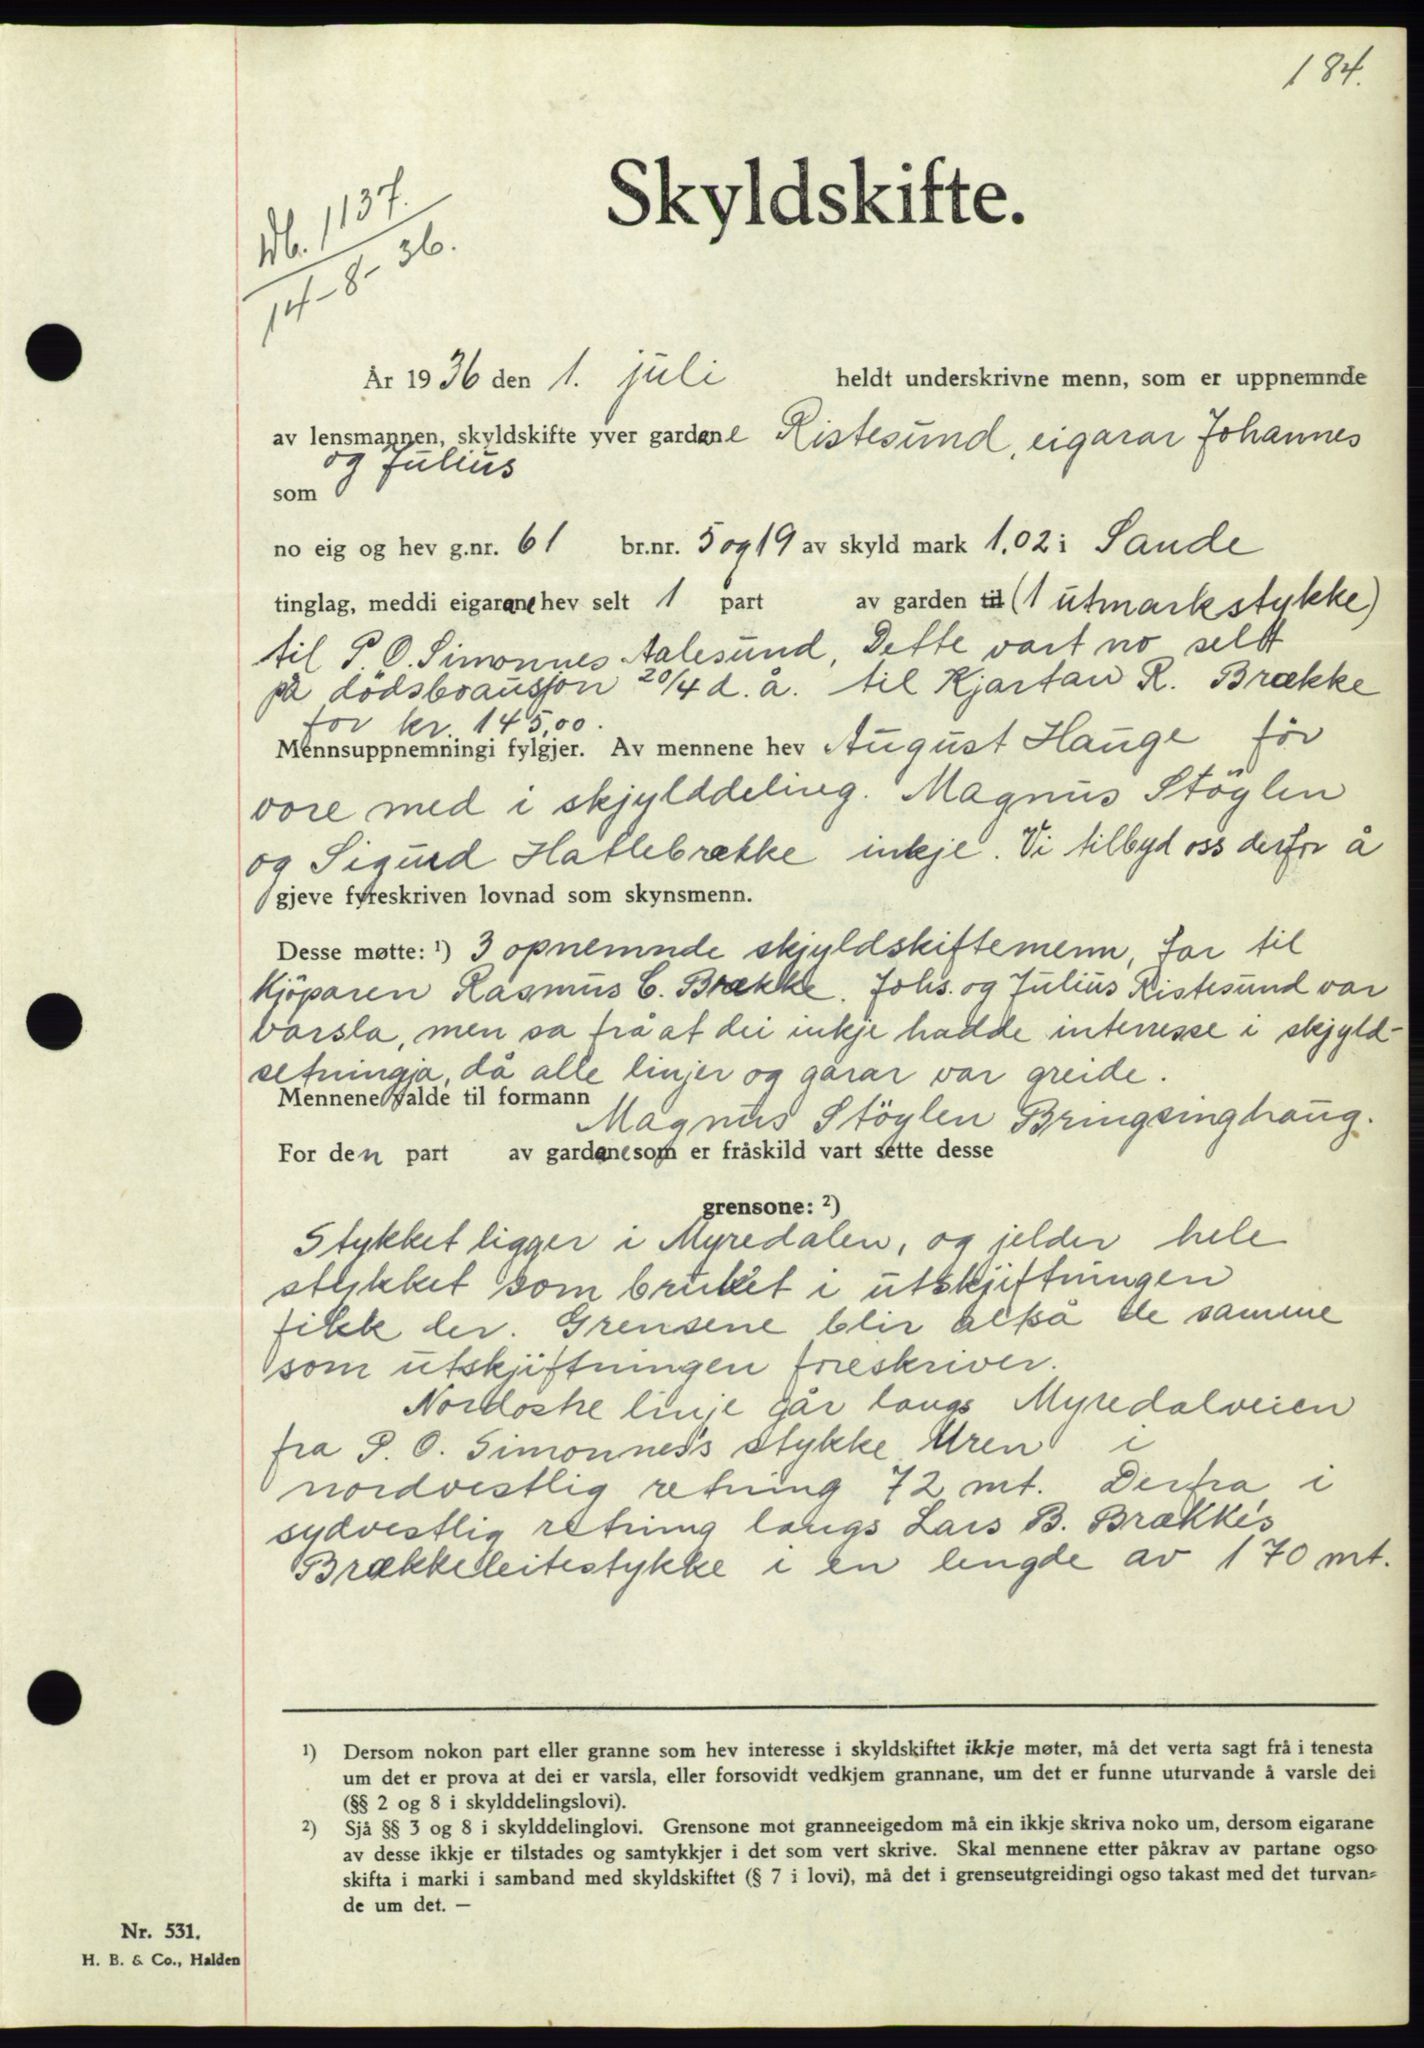 184.
Skyldskifte.
Db. 1137.
14-8-36.
År 1936 den 1. juli heldt underskrivne menn, som er uppnemnde
av lensmannen, skyldskifte yver gardane Ristesund, eigarar Johannes
og Julius
som
no eig og hev g.nr. 61 br.nr. 5 og 19 av skyld mark 1.02 i Sande
tinglag, meddi eigarane hev selt 1 part av garden til (1 utmarkstykke)
til P. O. Simonnes Aalesund, Dette vart no selt
på dödsboausjon 20/4 d. å. til Kjartan R. Brække
for kr. 145,00.
Mennsuppnemningi fylgjer. Av mennene hev August Hauge för
vore med i skjylddeling. Magnus Stöylen
og Sigurd Hatlebrække inkje. Vi tilbyd oss derfor å
gjeve fyreskriven lovnad som skynsmenn.
Desse møtte: ¹) 3 opnemnde skjyldskiftemenn, far til
Kjöparen Rasmus C. Brække. Johs. og Julius Ristesund var
varsla, men sa frå at dei inkje hadde interesse i skjyld-
setningja, då alle linjer og garar var greide.
Mennene valde til formann
Magnus Stöylen Bringsinghaug.
For den part av gardane som er fråskild vart sette desse
grensone: ²)
Stykket ligger i Myredalen, og jelder hele
stykket som bruket i utskjiftningen
fikk der. Grensene blir altså de samme
som utskjiftningen foreskriver.
Nordostre linje går langs Myredalveien
fra P. O. Simonnes's stykke Uren i
nordvestlig retning 72 mt. Derfra i
sydvestlig retning langs Lars B. Brække's
Brækkeleitestykke i en lengde av 170 mt.
¹) Dersom nokon part eller granne som hev interesse i skyldskiftet ikkje møter, må det verta sagt frå i tenesta
um det er prova at dei er varsla, eller forsovidt vedkjem grannane, um det er funne uturvande å varsle dei
(§§ 2 og 8 i skylddelingslovi).
²) Sjå §§ 3 og 8 i skylddelinglovi. Grensone mot granneeigedom må ein ikkje skriva noko um, dersom eigarane
av desse ikkje er tilstades og samtykkjer i det som vert skrive. Skal mennene etter påkrav av partane ogso
skifta i marki i samband med skyldskiftet (§ 7 i lovi), må det i grenseutgreidingi ogso takast med det turvan=
de um det. —
Nr. 531.
H. B. & Co., Halden